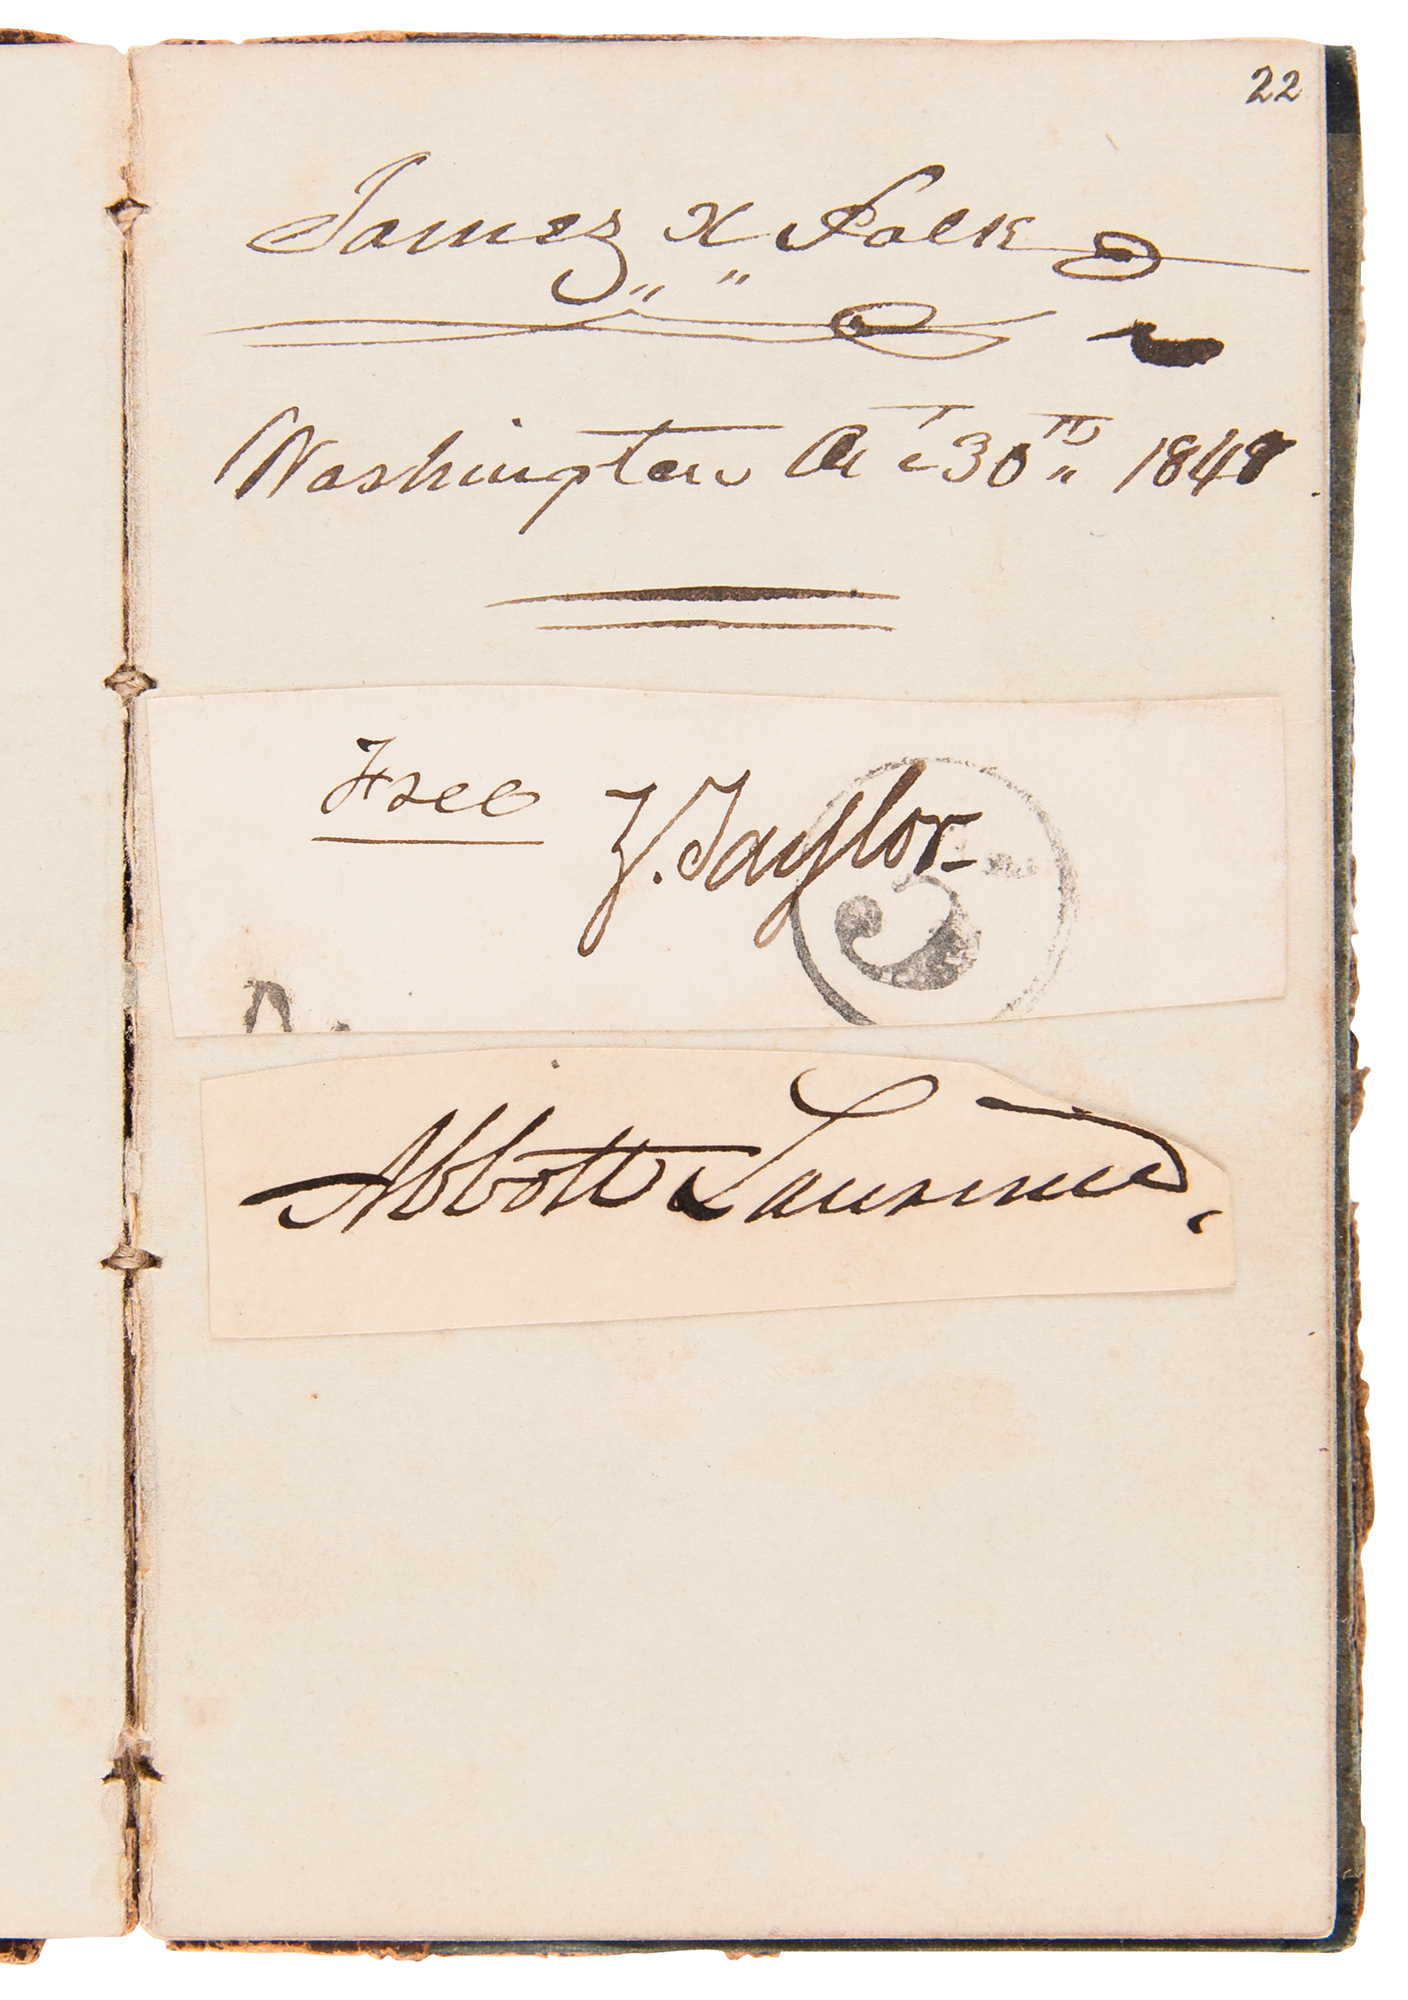 22
James K Polk
Washington Oct 30th 1848
Free Z. Taylor
5
Abbott Lawrence,